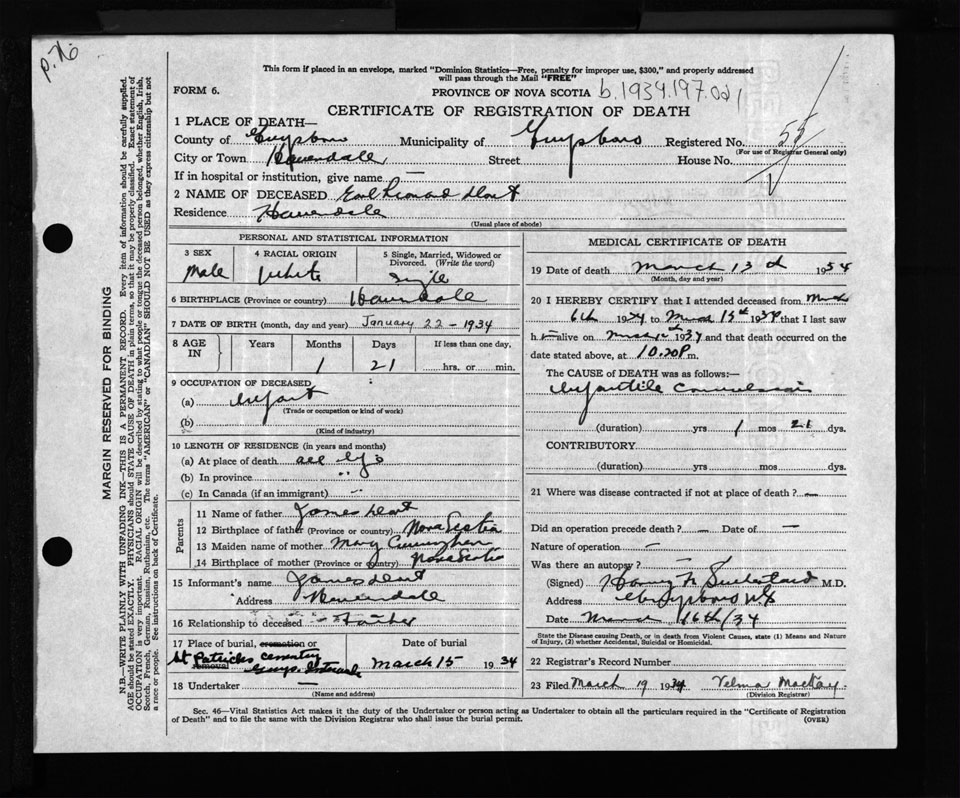 p. 76
This form if placed in an envelope, marked "Dominion Statistics—Free, penalty for improper use, $300," and properly addressed
will pass through the Mail "FREE"
FORM 6.
PROVINCE OF NOVA SCOTIA b.1934.197.02
CERTIFICATE OF REGISTRATION OF DEATH
1 PLACE OF DEATH—
County of Guysboro Municipality of Guysboro Registered No. 55
(For use of Registrar General only)
City or Town Havendale Street House No.
If in hospital or institution, give name —
2 NAME OF DECEASED Earl Dort
Residence Havendale
(Usual place of abode)
PERSONAL AND STATISTICAL INFORMATION
3 SEX
Male
4 RACIAL ORIGIN
White
5 Single, Married, Widowed or Divorced. (Write the word)
Single
6 BIRTHPLACE (Province or country) Havendale
7 DATE OF BIRTH (month, day and year) January 22 - 1934
8 AGE IN Years Months Days If less than one day,
1 21 hrs. or min.
9 OCCUPATION OF DECEASED
(a) Infant
(Trade or occupation or kind of work)
(b)
(Kind of industry)
10 LENGTH OF RESIDENCE (in years and months)
(a) At place of death all life
(b) In province "
(c) In Canada (if an immigrant) "
Parents
11 Name of father James Dort
12 Birthplace of father (Province or country) Nova Scotia
13 Maiden name of mother Mary Cunningham
14 Birthplace of mother (Province or country) Nova Scotia
15 Informant's name James Dort
Address Havendale
16 Relationship to deceased Father
17 Place of burial, cremation or removal Date of burial
St Patricks Cemetery
March 15 1934
18 Undertaker —
(Name and address)
MEDICAL CERTIFICATE OF DEATH
19 Date of death March 13 1934
(Month, day and year)
20 I HEREBY CERTIFY that I attended deceased from March
6th 1934 to March 1934 that I last saw
h alive on 1934 and that death occurred on the
date stated above, at 10.20 P m.
The CAUSE of DEATH was as follows:—
Infantile Convulsions
(duration) yrs 1 mos 21 dys.
CONTRIBUTORY
(duration) yrs. mos. dys.
21 Where was disease contracted if not at place of death? —
Did an operation precede death? — Date of —
Nature of operation —
Was there an autopsy? —
(Signed) Harry N Sutherland M.D.
Address Guysboro NS
Date March 16th/34
State the Disease causing Death, or in death from Violent Causes, state (1) Means and Nature
of Injury, (2) whether Accidental, Suicidal or Homicidal.
22 Registrar's Record Number
23 Filed March 19 1934 Velma MacKay
(Division Registrar)
Sec. 46—Vital Statistics Act makes it the duty of the Undertaker or person acting as Undertaker to obtain all the particulars required in the "Certificate of Registration
of Death" and to file the same with the Division Registrar who shall issue the burial permit.
(OVER)
MARGIN RESERVED FOR BINDING
N.B.—WRITE PLAINLY WITH UNFADING INK—THIS IS A PERMANENT RECORD. Every item of information should be carefully supplied.
AGE should be stated EXACTLY. PHYSICIANS should STATE CAUSE OF DEATH in plain terms, so that it may be properly classified. Exact statement of
OCCUPATION is very important. RACIAL ORIGIN will be described by stating to what people or tongue the deceased person belonged, whether English, Irish,
Scotch, French, German, Russian, Ruthenian, etc. The terms "AMERICAN" or "CANADIAN" SHOULD NOT BE USED as they express citizenship but not
a race or people. See instructions on back of Certificate.